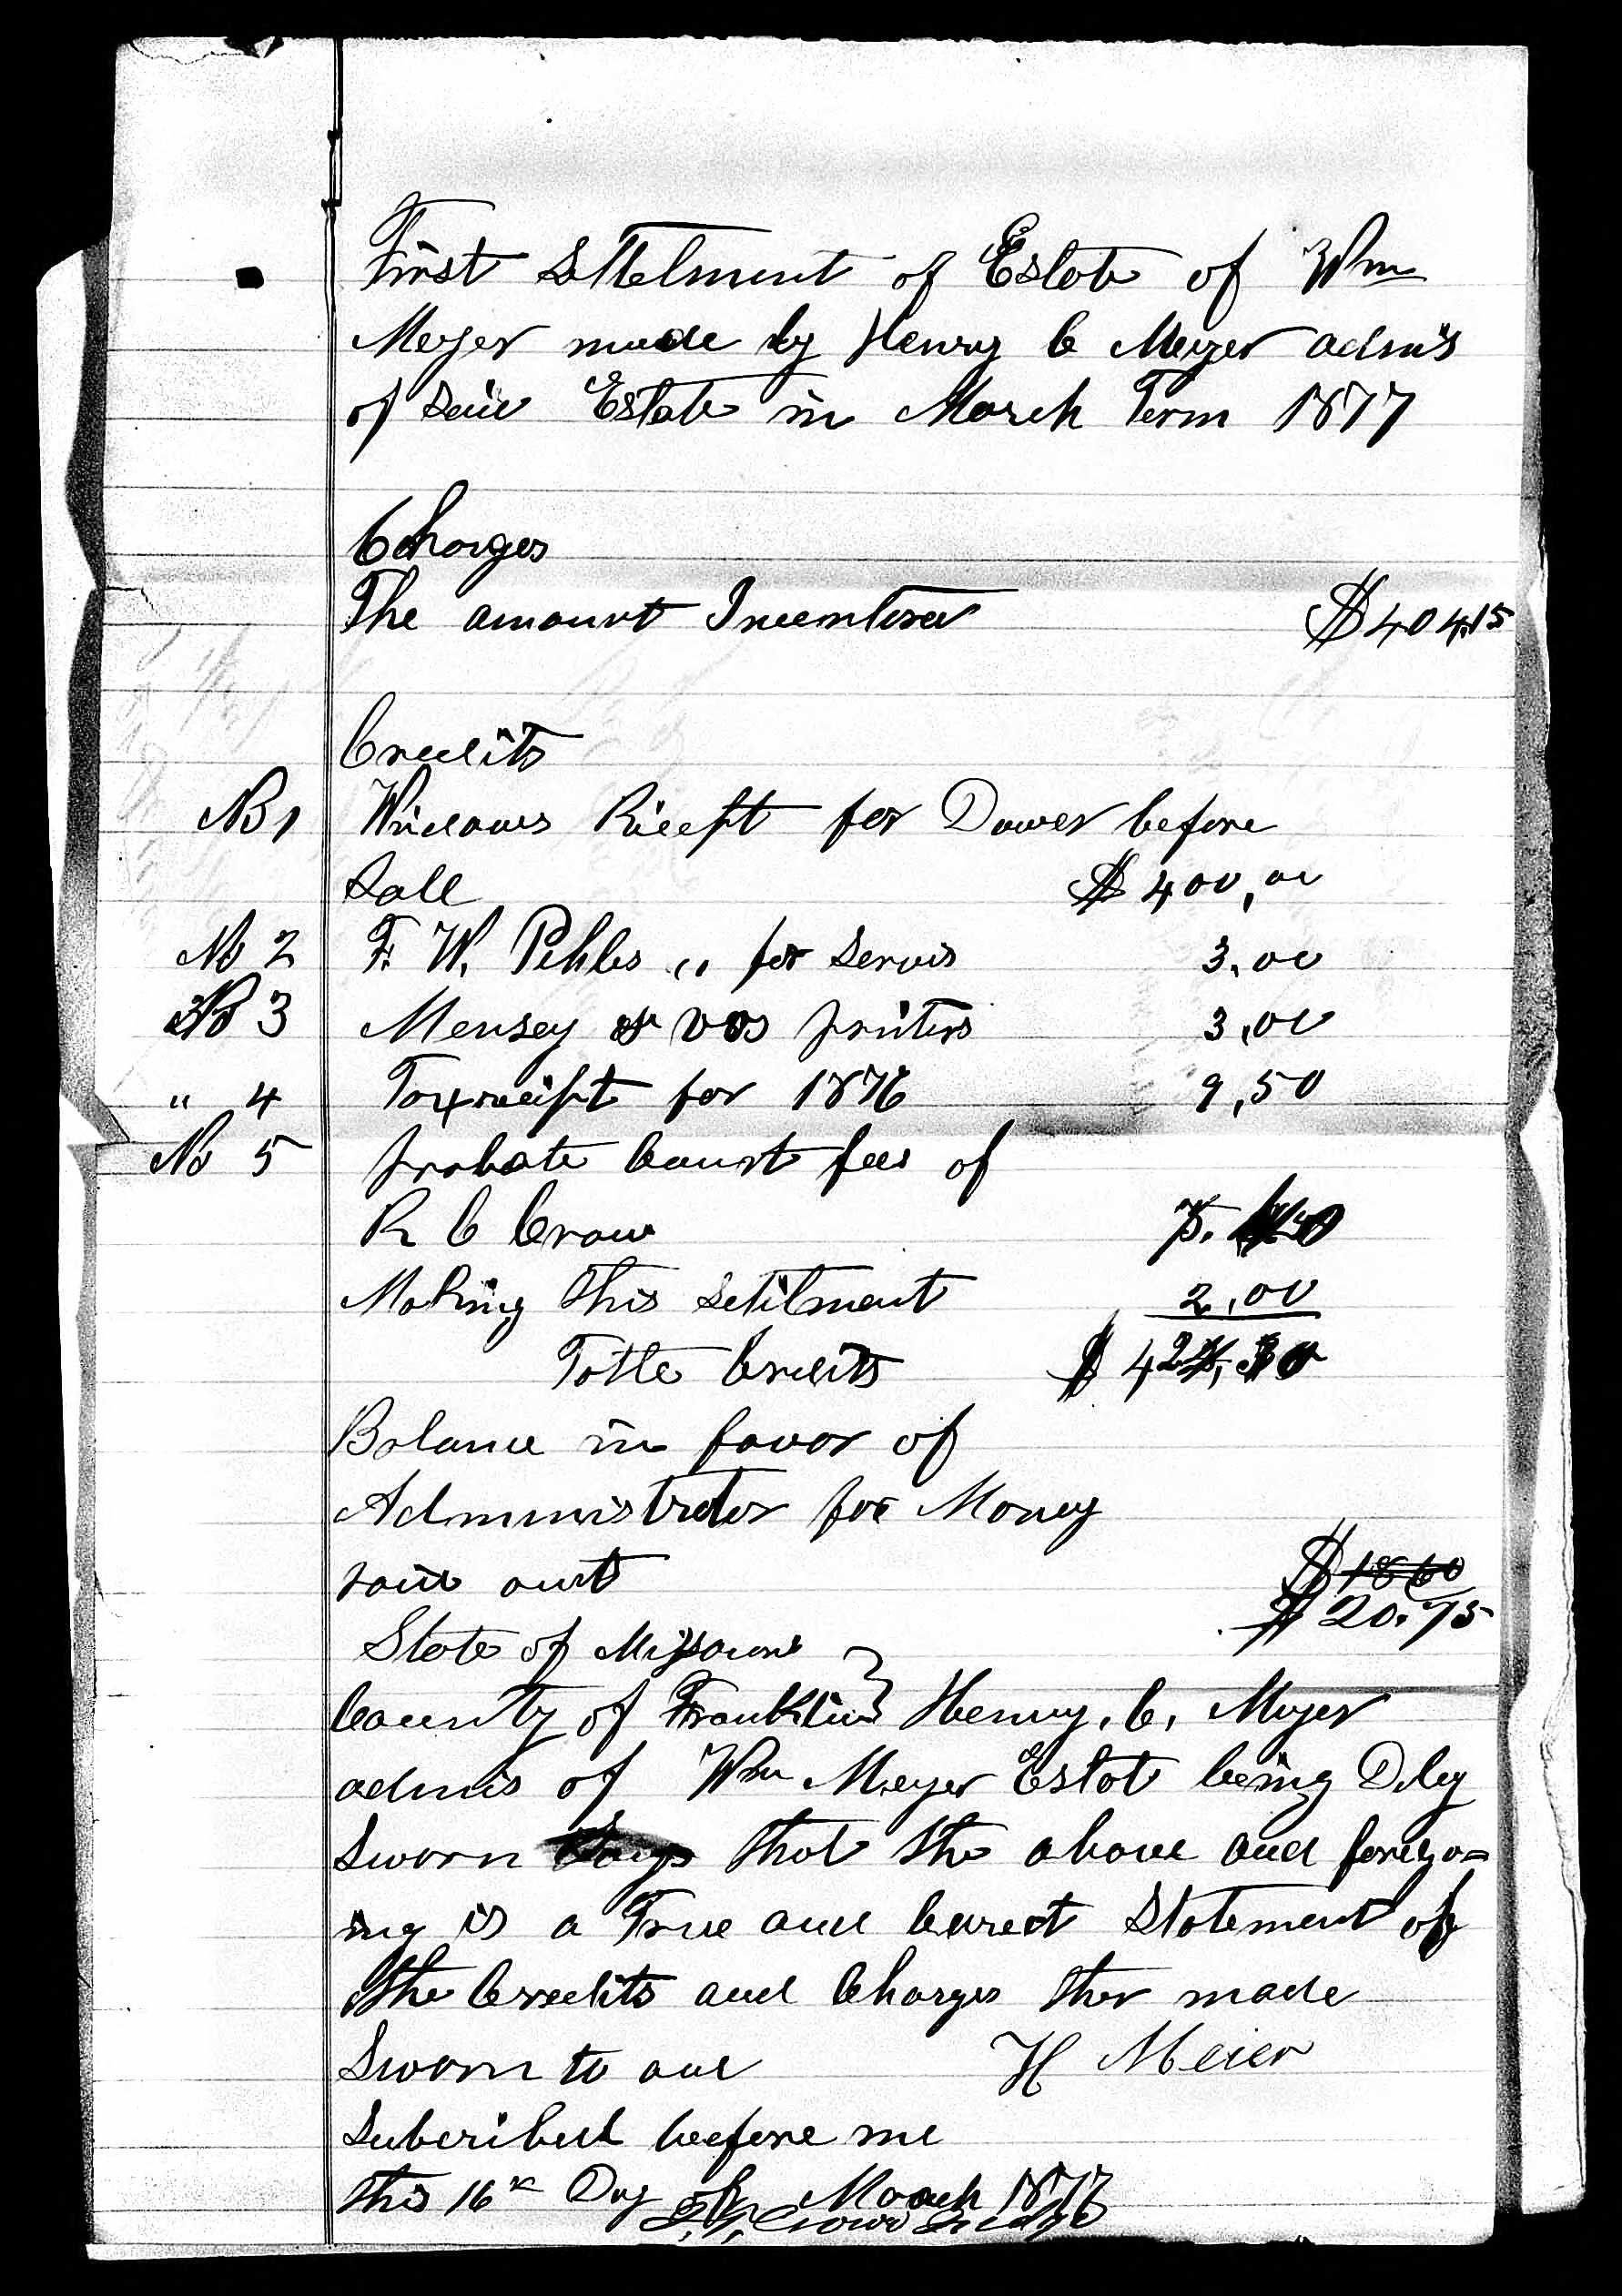 First Settelment of Estate of Wm
Meyer made by Henry C Meyer admis
of Said Estate in March Term 1877
Charges
The amount Inventored $404.15
Credits
No 1 Widows Riecpt for Dower before
Sale $400,00
No 2 F. W. Pehles " for Servis 3,00
No 3 Mensey & Vos printers 3,00
" 4 Taxreceipt for 1876 9,50
No 5 probate Court fees of
R C Crow 7.
Making this Setilment 2,00
Totle Credits $
Balance in favor of
Administrator for Money
paid out $18 60
$20.75
State of Missouri }
County of Franklin } Henry, C, Meyer
admis of Wm Meyer Estat being Duly
Sworn Says that the above and forego=
ing is a True and Correct Statement of
the Credits and Charges ther made
Sworn to and H Meier
Subcribed before me
this 16th Day of March 1877
Crow Judge